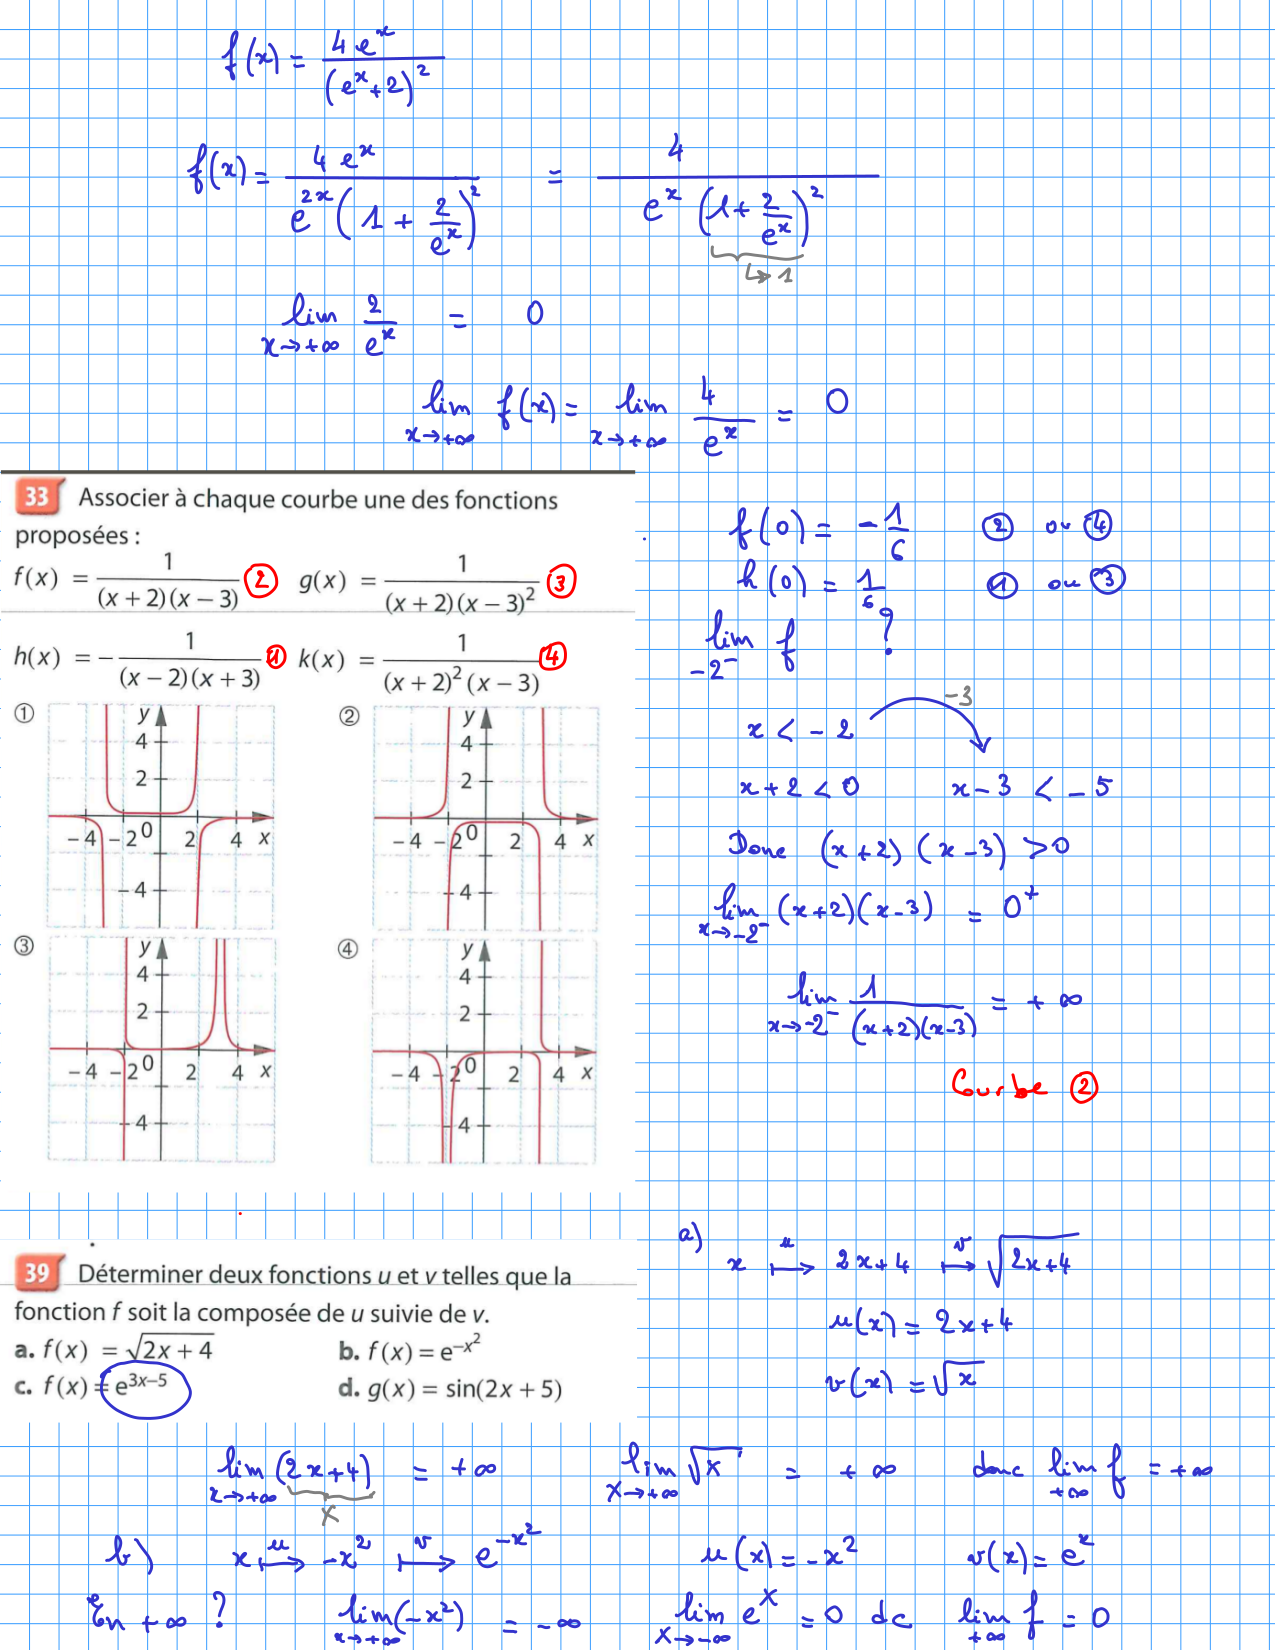 f(x) = 4e^x / (e^x + 2)^2
f(x) = 4e^x / e^{2x}(1 + 2/e^x)^2 = 4 / e^x(1 + 2/e^x)^2
↳ 1
lim x→+∞ 2/e^x = 0
lim x→+∞ f(x) = lim x→+∞ 4/e^x = 0
33 Associer à chaque courbe une des fonctions
proposées :
f(x) = 1/((x + 2)(x − 3)) ② g(x) = 1/((x + 2)(x − 3)^2) ③
h(x) = − 1/((x − 2)(x + 3)) ① k(x) = 1/((x + 2)^2 (x − 3)) ④
① y 4 2 −4 −2 0 2 4 x −4
② y 4 2 −4 −2 0 2 4 x −4
③ y 4 2 −4 −2 0 2 4 x −4
④ y 4 2 −4 −2 0 2 4 x −4
f(0) = −1/6 ② ou ④
h(0) = 1/6 ① ou ③
lim -2⁻ f ?
x < −2 −3
x+2 < 0 x−3 < −5
Donc (x+2)(x−3) > 0
lim x→−2⁻ (x+2)(x−3) = 0⁺
lim x→−2⁻ 1/((x+2)(x−3)) = +∞
Courbe ②
39 Déterminer deux fonctions u et v telles que la
fonction f soit la composée de u suivie de v.
a. f(x) = √(2x + 4) b. f(x) = e^{−x^2}
c. f(x) = e^{3x−5} d. g(x) = sin(2x + 5)
a) x ⟼u 2x+4 ⟼v √(2x+4)
u(x) = 2x+4
v(x) = √x
lim x→+∞ (2x+4) = +∞ lim X→+∞ √X = +∞ donc lim +∞ f = +∞
X
b) x ⟼u −x² ⟼v e^{−x²} u(x) = −x² v(x) = e^x
En +∞ ? lim x→+∞ (−x²) = −∞ lim X→−∞ e^X = 0 dc lim +∞ f = 0